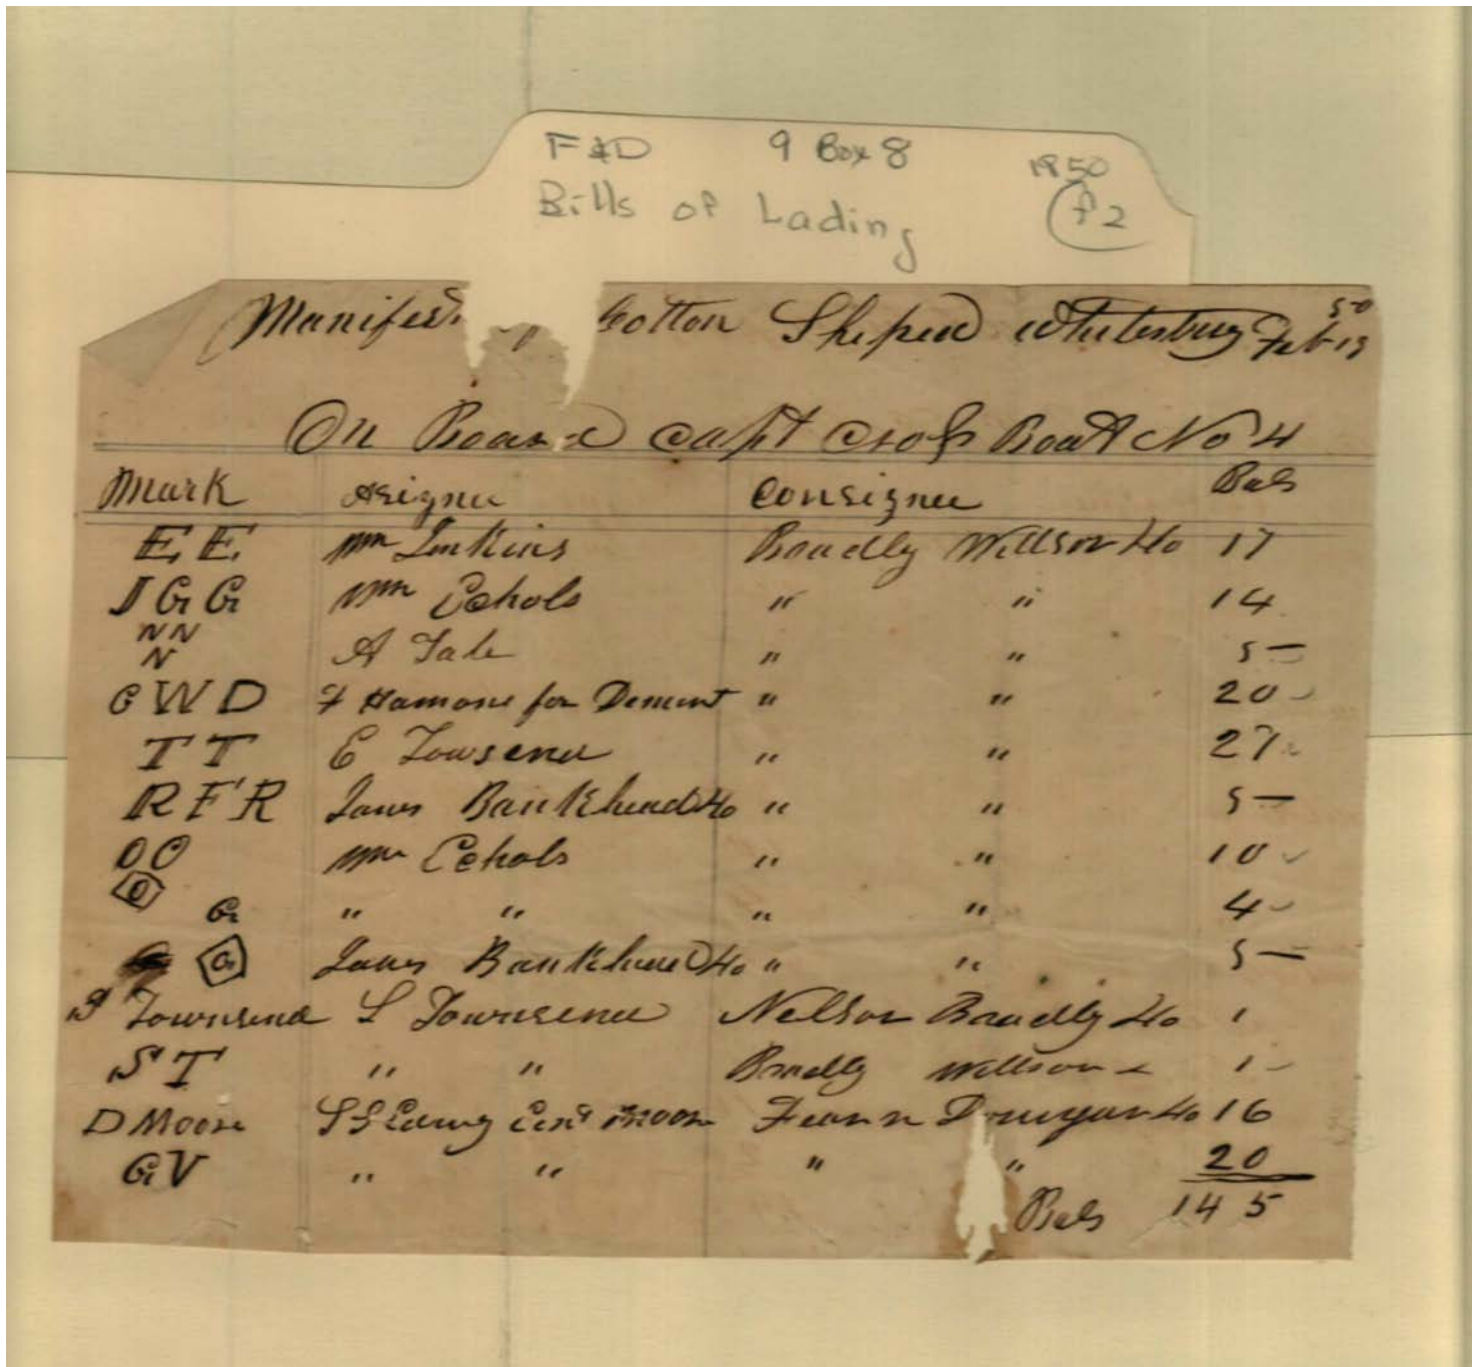 F&D 9 Box 8 1850
Bills of Lading f2
Manifest of Cotton Shiped Whitesburg Feb 13 50
On Board Capt Crofs Boat No 4
Mark Asignee Consignee Bals
E. E. Wm Jinkins Bradly Willson & Co 17
J G G Wm Echols " " 14
N N
N A Tale " " 5 —
G W D F Hamons for Dement " " 20
T T E Towsend " " 27
R F R James Bankhead & Co " " 5 —
O O Wm Echols " " 10
O G " " " " 4
G James Bankhead & Co " " 5 —
Townsend L Townsend Nelson Bradly & Co 1
S T " " Bradly Willson 1 -
D Moore Moore & Co 16
G V " " " " 20
Bals 145